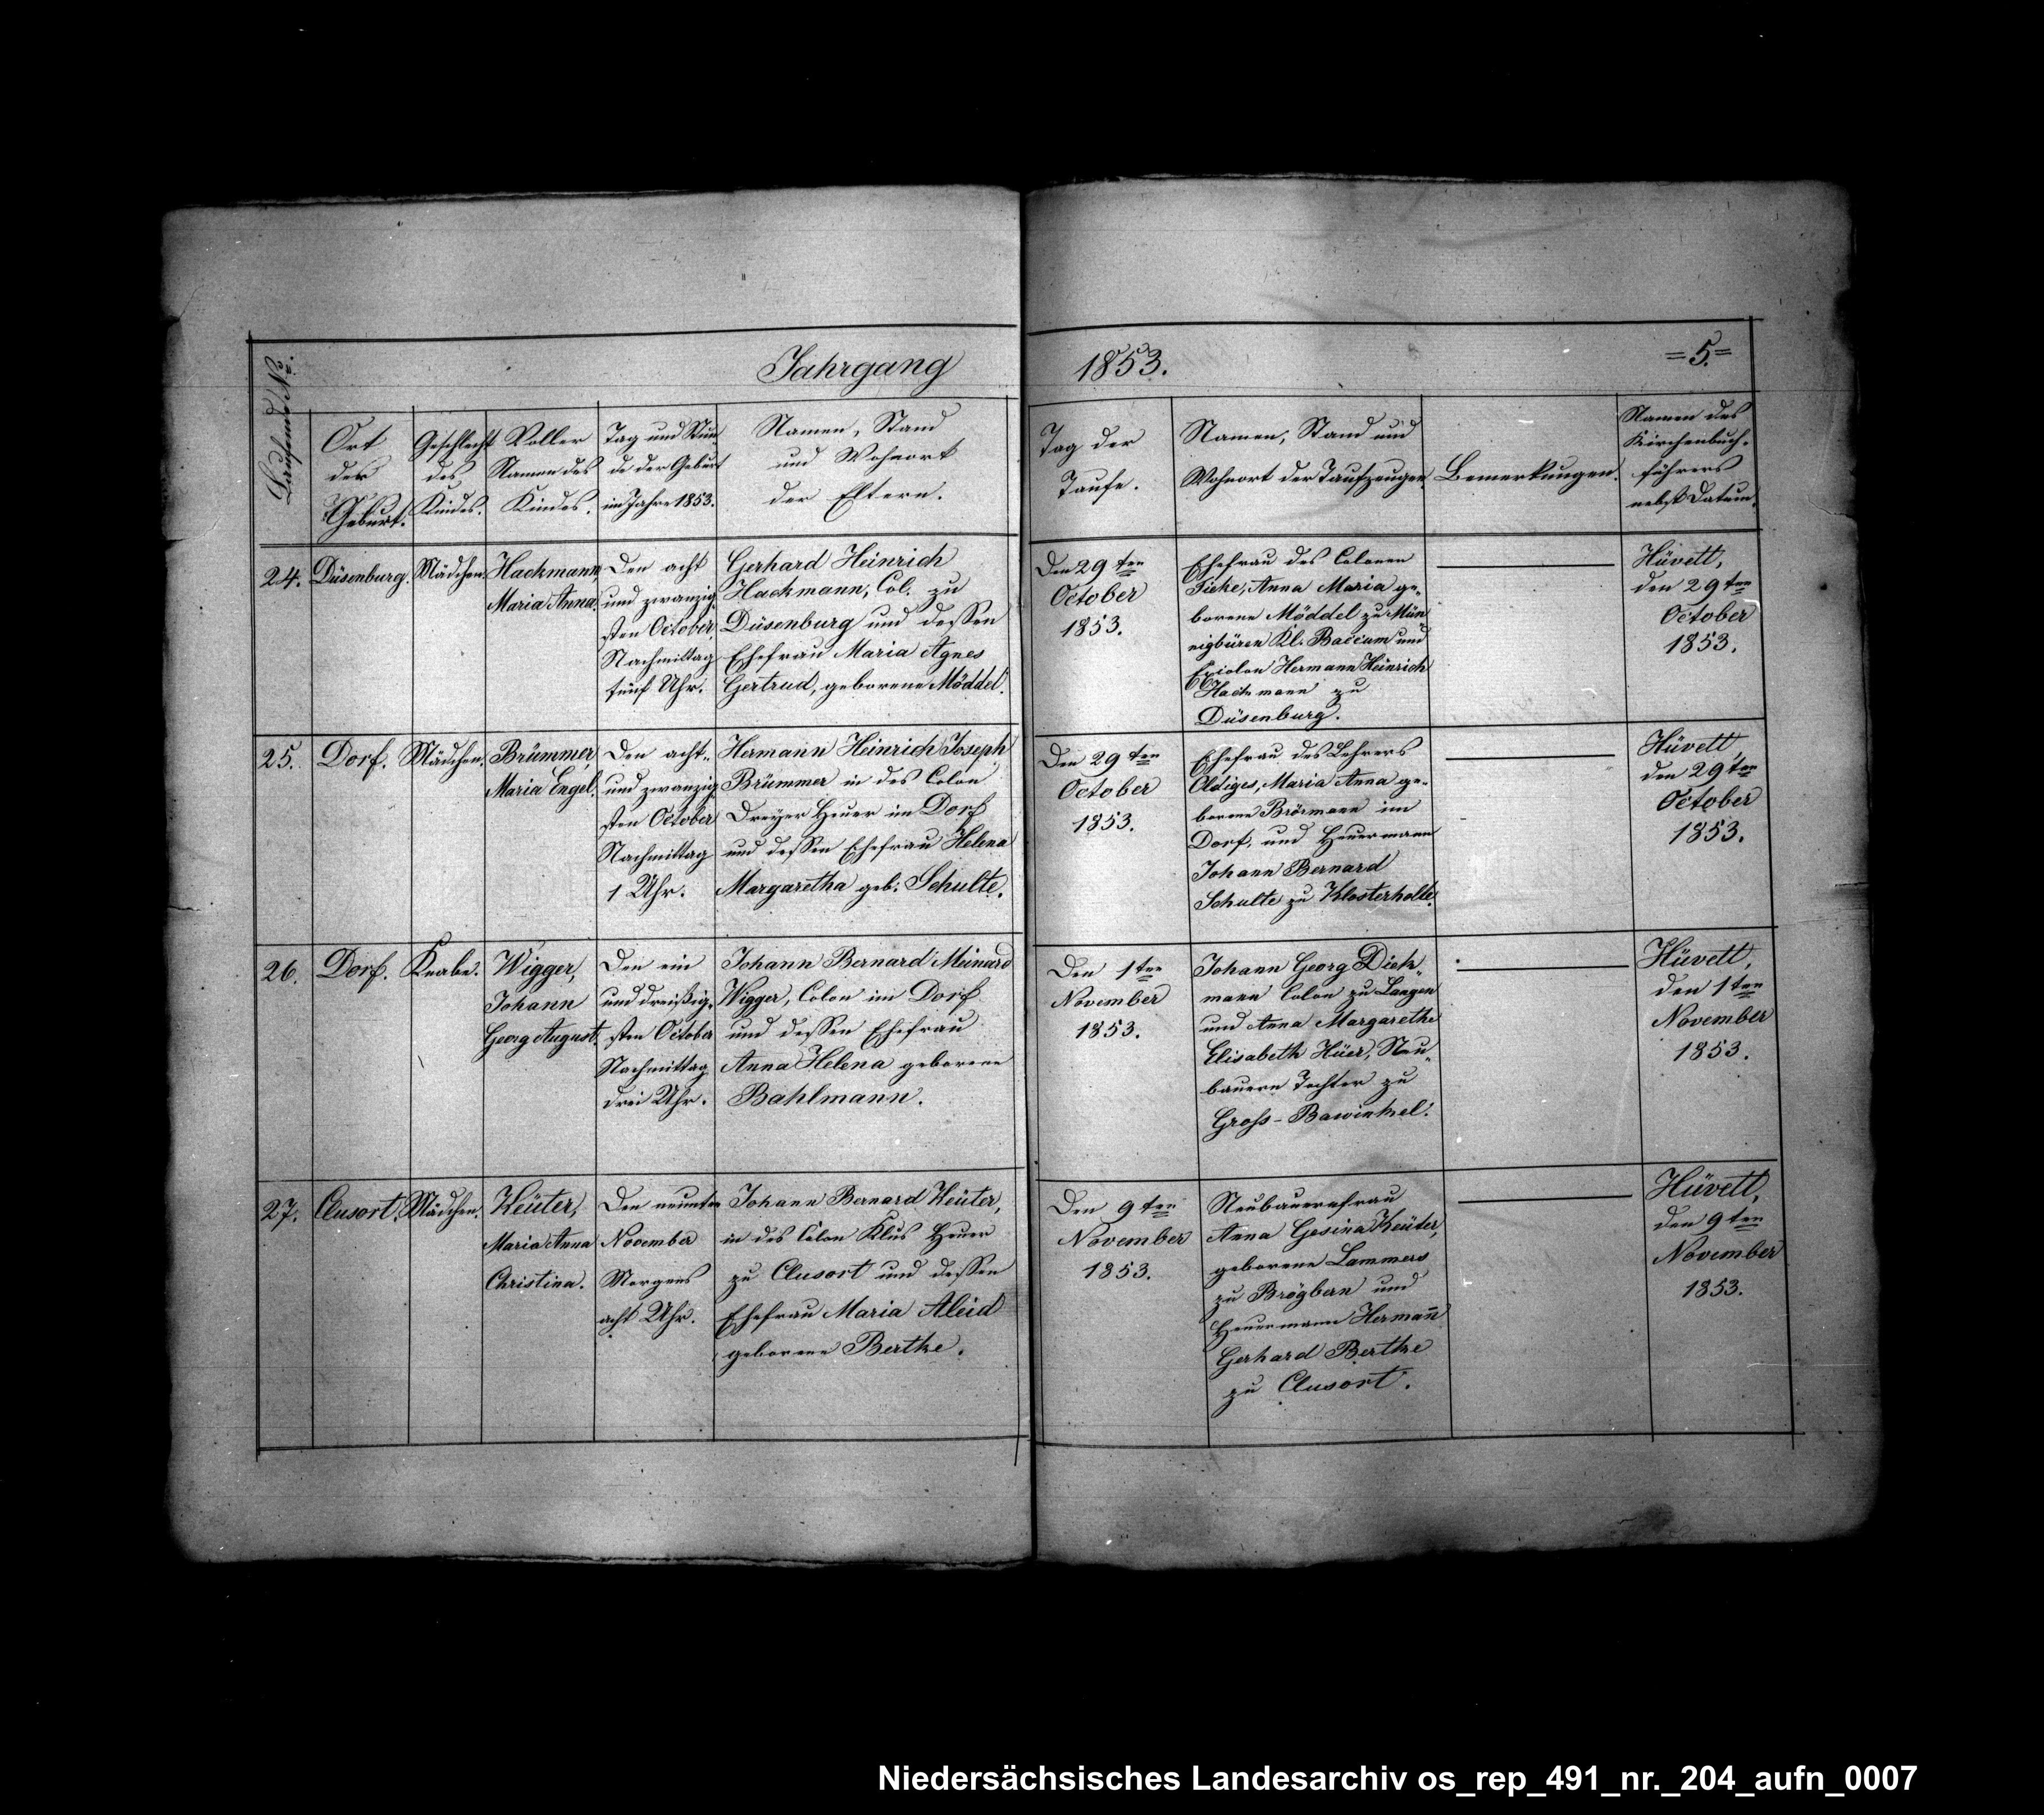 Jahrgang 1853. =5.=
Laufende No.
Ort
der
Geburt.
Geschlecht
des
Kindes.
Voller
Namen des
Kindes.
Tag und Stun-
de der Geburt
im Jahre 1853.
Namen, Stand
und Wohnort
der Eltern.
Tag der
Taufe.
Namen, Stand und
Wohnort der Taufzeugen.
Bemerkungen.
Namen des
Kirchenbuch-
führers
nebst Datum.
24.
Düsenburg.
Mädchen.
Hackmann,
Maria Anna.
Den acht
und zwanzig-
sten October,
Nachmittag
fünf Uhr.
Gerhard Heinrich
Hackmann, Col. zu
Düsenburg und dessen
Ehefrau Maria Agnes
Gertrud, geborene Möddel.
Den 29ten
October
1853.
Ehefrau des Colonen
Ficke, Anna Maria ge-
borene Möddel zu Mün-
nigbüren Kl. Baccum und
Hermann Heinrich
Hackmann zu
Düsenburg.
Hüvett,
den 29ten
October
1853.
25.
Dorf.
Mädchen.
Brümmer,
Maria Engel.
Den acht-
und zwanzig-
sten October
Nachmittag
1 Uhr.
Hermann Heinrich Joseph
Brümmer in des Colon
Dreyer Heuer im Dorf
und dessen Ehefrau Helena
Margaretha geb. Schulte.
Den 29ten
October
1853.
Ehefrau des Lehrers
Oldiges, Maria Anna ge-
borene Brörmann im
Dorf, und Heuermann
Johann Bernard
Schulte zu Klosterholte.
Hüvett,
den 29ten
October
1853.
26.
Dorf.
Knabe.
Wigger,
Johann
Georg August.
Den ein
und dreißig-
sten October
Nachmittag
drei Uhr.
Johann Bernard Meinard
Wigger, Colon im Dorf
und dessen Ehefrau
Anna Helena geborene
Bahlmann.
Den 1ten
November
1853.
Johann Georg Diek-
mann Colon zu Langen
und Anna Margarethe
Elisabeth Hüer, Neu-
bauern Tochter zu
Gross-Bawinkel.
Hüvett,
den 1ten
November
1853.
27.
Clusort.
Mädchen.
Keüter,
Maria Anna
Christina.
Den neunten
November
Morgens
acht Uhr.
Johann Bernard Keüter,
in des Colon Klus Heuer
zu Clusort und dessen
Ehefrau Maria Aleid
geborene Bertke.
Den 9ten
November
1853.
Neubauernfrau
Anna Gesina Keüter,
geborene Lammers
zu Brögbern und
Heuermann Hermañ
Gerhard Bertke
zu Clusort.
Hüvett,
den 9ten
November
1853.
Niedersächsisches Landesarchiv os_rep_491_nr._204_aufn_0007